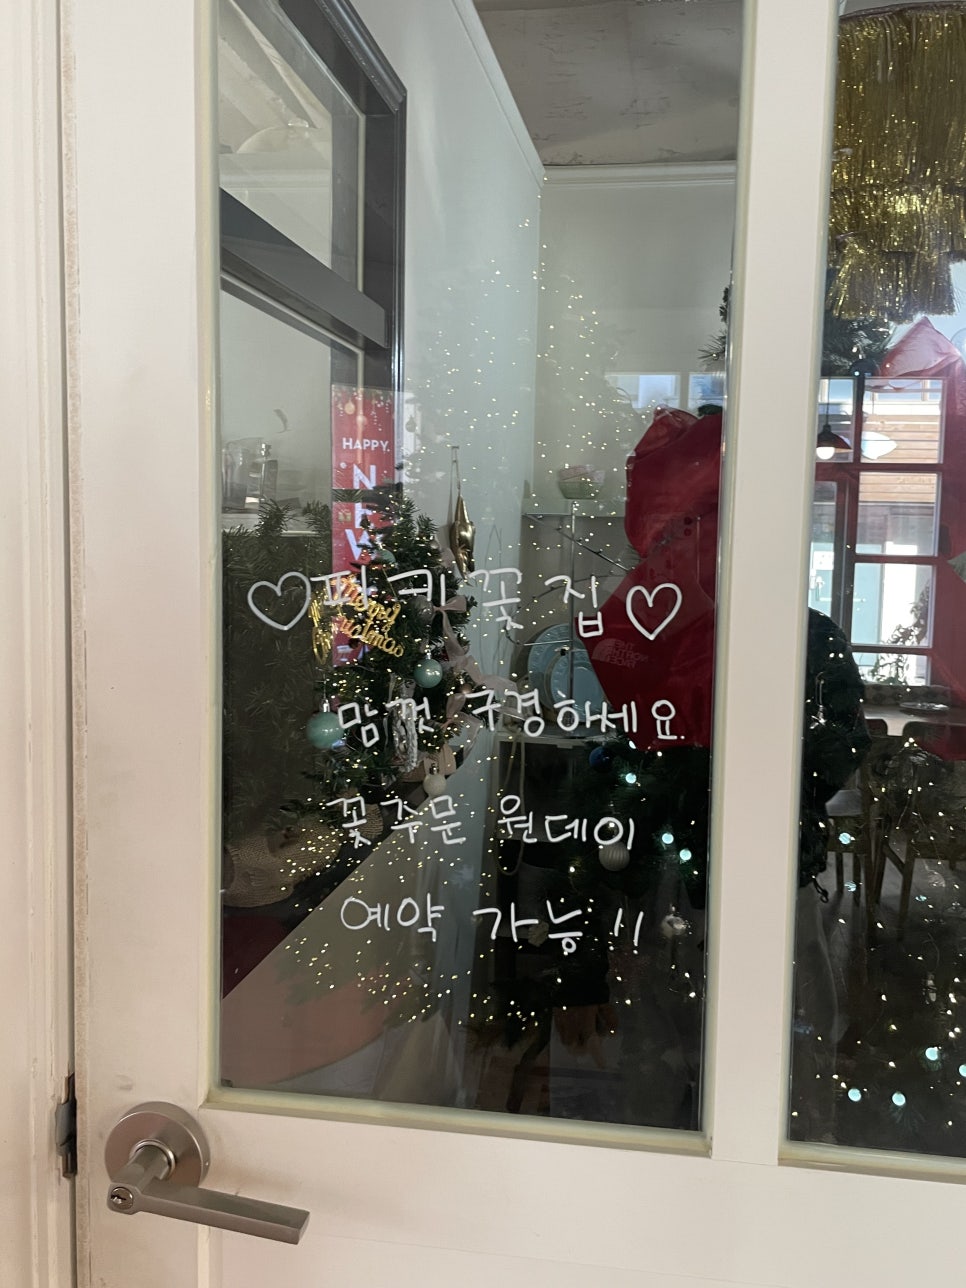 HAPPY
NEW
♡피카꽃집♡
맘껏 구경하세요.
꽃주문 원데이
예약 가능!!
THE
NORTH
FACE